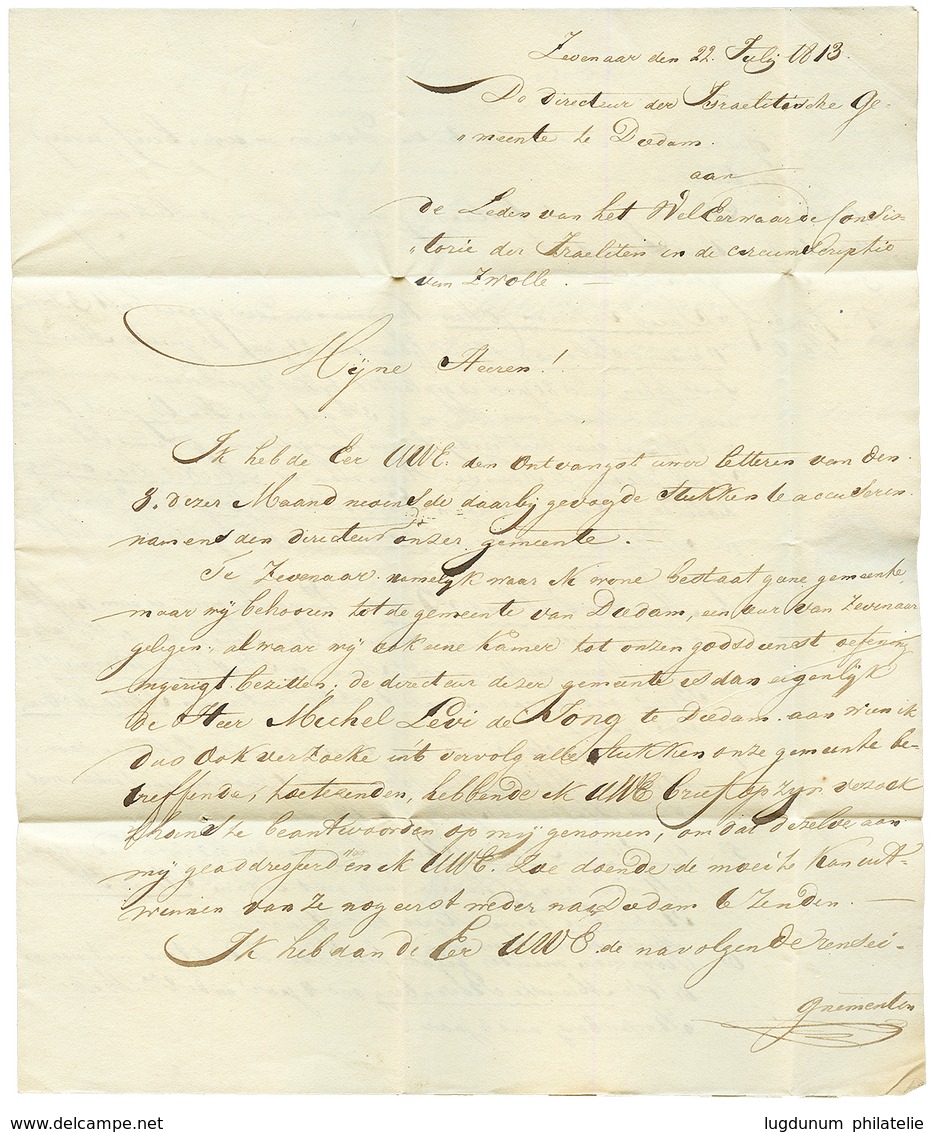 Zevenaar den 22. Julij 1813.
De directeur der Israelitische Ge-
„meente te Diedam.
aan
de Leden van het WelEerwaarde Consis-
„torie der Israeliten in de circumscriptie
van Zwolle. —
Mÿne Heeren!
Ik heb de Eer UWE. den ontvangst uwer letteren van den
8. dezer Maand nevens de daarbij gevoegde stukken te accuseren
namens den directeur onzer gemeente. —
Te Zevenaar namelyk waar ik wone bestaat gene gemeente,
maar wÿ behooren tot de gemeente van Diedam, een uur van Zevenaar
gelegen, alwaar wÿ ook eene kamer tot onzen godsdienst oefening
ingerigt bezitten; de directeur dezer gemeente is dan eigenlÿk
de Heer Michel Levi de Jong te Diedam. aan wien ik
dus ook verzoeke int vervolg alle stukken onze gemeente be-
treffende, toetezenden, hebbende ik UWE brief op zyn verzoek
thans te beantwoorden op mÿ genomen, om dat dezelve aan
mÿ geaddresserd was en ik UWE. zoe doende de moeite kan uit-
winnen van ze nog eerst weder na Diedam te zenden. —
Ik heb dan de Eer UWE de navolgende rensei-
gnementen
lugdunum philatelie
www.delcampe.net